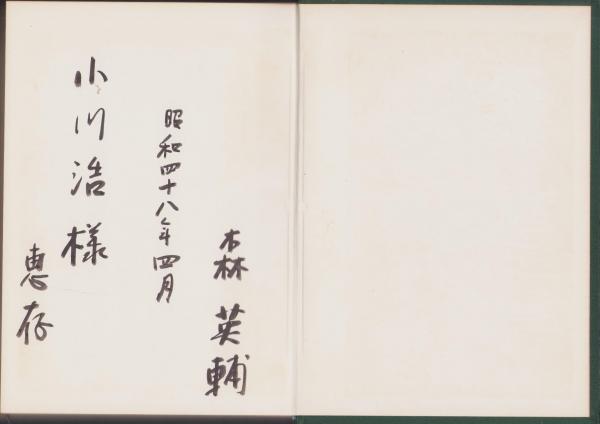 森英輔
昭和四十八年四月
小川浩様
恵存